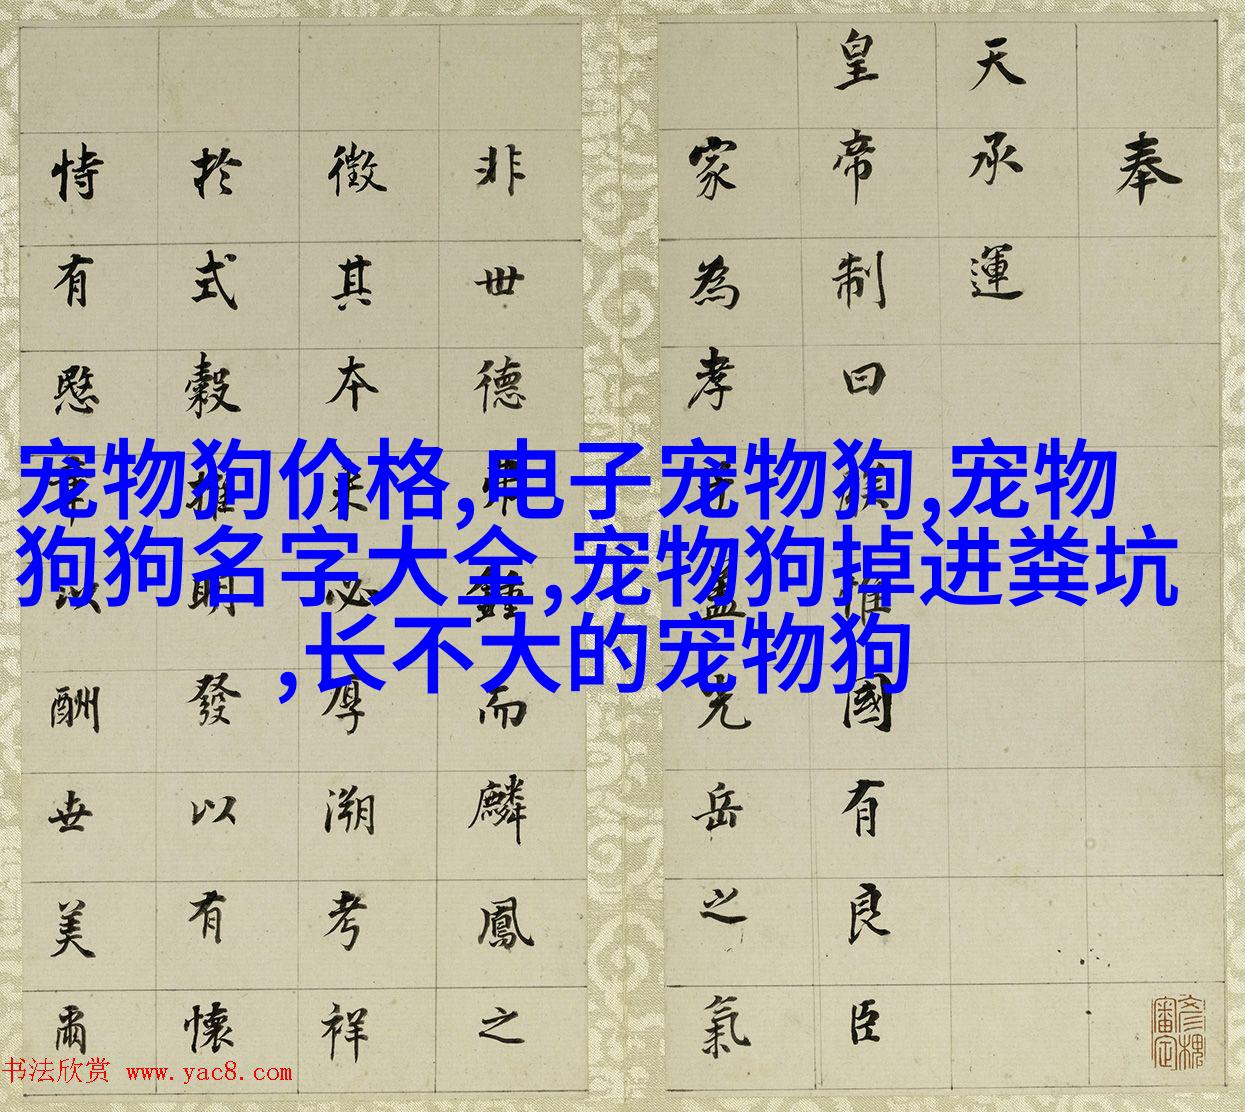 奉
天承運
皇帝制曰惟國有良臣
家為孝蓋光岳之氣
非世德鍾而麟鳳之
徵其本末必厚溯考祥
於式穀推明發以有懷
恃有愍章以酬世美爾
宠物狗价格,电子宠物狗,宠物
狗狗名字大全,宠物狗掉进粪坑
,长不大的宠物狗
书法欣赏 www.yac8.com